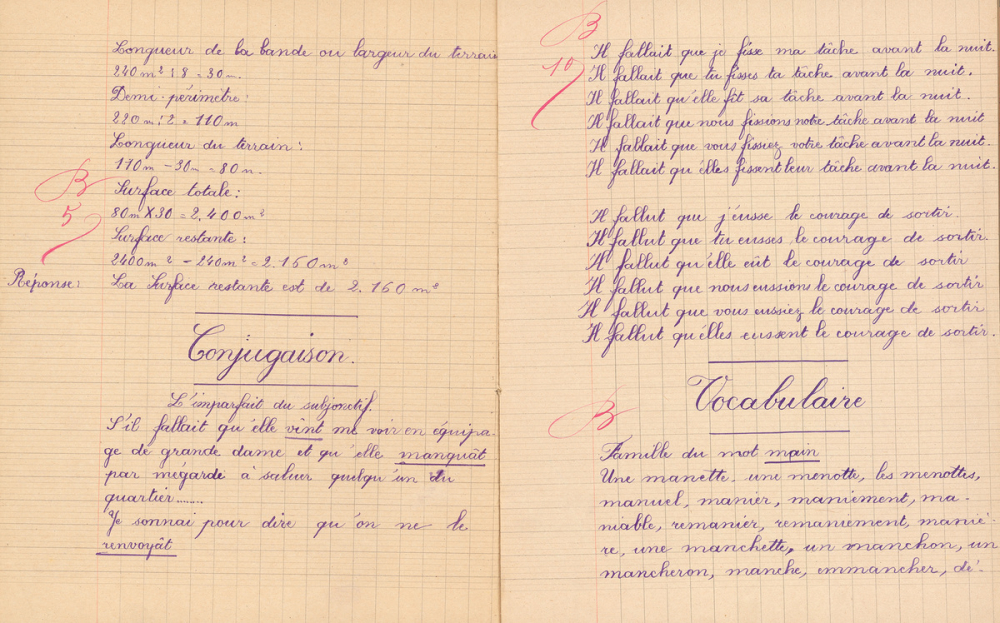 Longueur de la bande ou largeur du terrain
240 m² : 8 = 30 m.
Demi-périmètre :
220 m : 2 = 110 m
Longueur du terrain :
110 m - 30 m = 80 m.
B
Surface totale :
5
80 m X 30 = 2.400 m²
Surface restante :
2400 m² - 240 m² = 2.160 m²
Réponse : La Surface restante est de 2.160 m²
Conjugaison.
L'imparfait du subjonctif.
S'il fallait qu'elle vint me voir en équipa-
ge de grande dame et qu'elle manquât
par mégarde à saluer quelqu'un du
quartier........
Je sonnai pour dire qu'on ne le
renvoyât
B
10
Il fallait que je fisse ma tâche avant la nuit.
Il fallait que tu fisses ta tâche avant la nuit.
Il fallait qu'elle fît sa tâche avant la nuit.
Il fallait que nous fissions notre tâche avant la nuit
Il fallait que vous fissiez votre tâche avant la nuit.
Il fallait qu'elles fissent leur tâche avant la nuit.
Il fallut que j'eusse le courage de sortir.
Il fallut que tu eusses le courage de sortir.
Il fallut qu'elle eût le courage de sortir
Il fallut que nous eussions le courage de sortir
Il fallut que vous eussiez le courage de sortir
Il fallut qu'elles eussent le courage de sortir.
Vocabulaire
B
Famille du mot main
Une manette, une menotte, les menottes,
manuel, manier, maniement, ma-
niable, remanier, remaniement, maniè-
re, une manchette, un manchon, un
mancheron, manche, emmancher, dé-